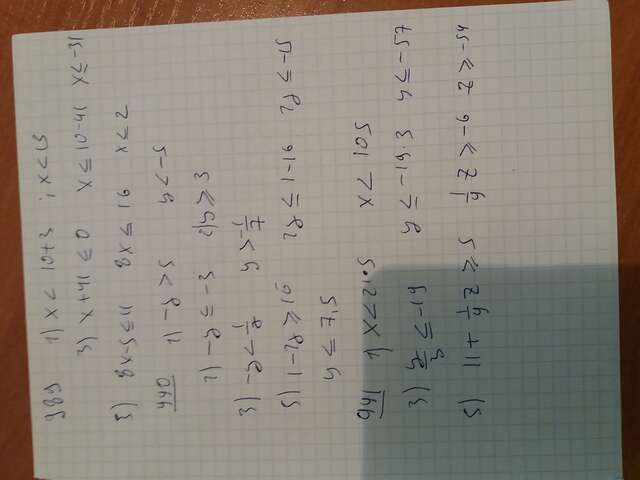 989 1) x < 10+3 ; x < 13
3) x + 41 ≤ 0 x ≤ 10-41 x ≤ -31
5) 8x-5 ≤ 11 8x ≤ 16 x ≤ 2
940 1) -y > 5 y < -5
2) -y ≤ -3 2) y ≥ 3
3) -y < 1/7 y > -1/7
5) 1-2y ≥ 16 2y ≤ 1-16 2y ≤ -15
y ≤ 7,5
941 1) x < 21•5 x < 105
3) y/3 ≤ -19 y ≤ -19·3 y ≤ -57
5) 11 + 1/9 z ≥ 5 1/9 z ≥ -6 z ≥ -54